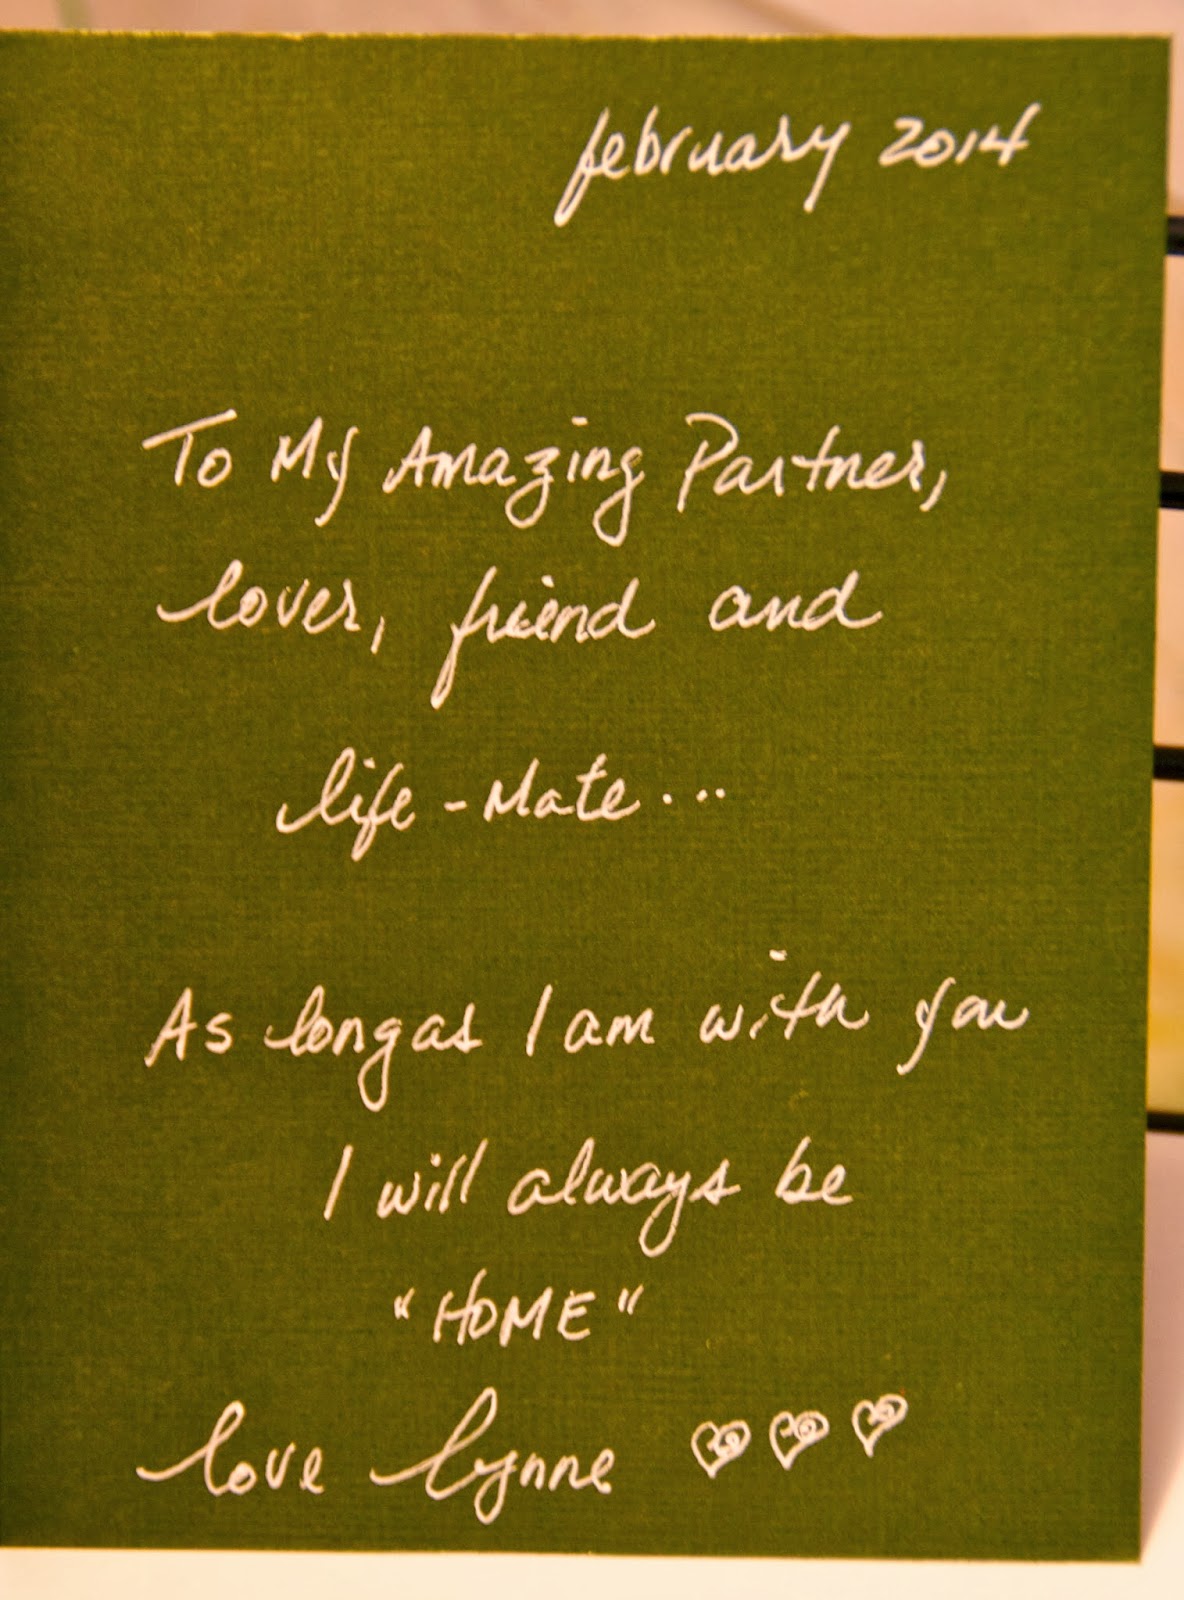 february 2014
To My Amazing Partner,
lover, friend and
life-Mate...
As long as I am with you
I will always be
"HOME"
love lynne